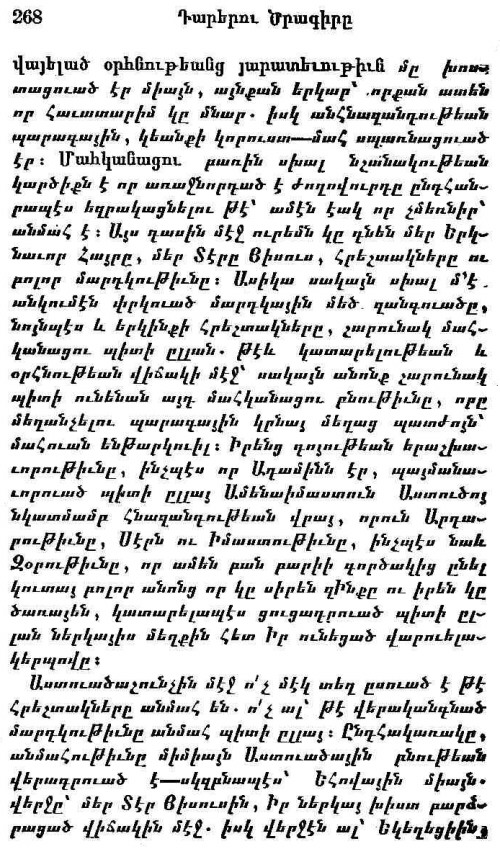 268 Դարերու Ծրագիրը
վայելած օրհնութեանց յարատեւութիւն մը խոս-
տացուած էր միայն, այնքան երկար՝ որքան ատեն
որ Հաւատարիմ կը մնար. իսկ անՀնազանդութեան
պարագային, կեանքի կորուստ—մահ սպառնացուած
էր: Մահկանացու բառին սխալ նշանակութեան
կարծիքն է որ առաջնորդած է ժողովուրդը ընդՀան-
րապէս եզրակացնելու թէ՝ ամէն էակ որ չմեռնիր՝
անմահ է: Այս դասին մէջ ուրեմն կը դնեն մեր Երկ-
նաւոր Հայրը, մեր Տէրը Յիսուս, Հրեշտակները ու
բոլոր մարդկութիւնը: Ասիկա սակայն սխալ մ'է.
անկումէն փրկուած մարդկային մեծ զանգուածը,
նոյնպէս և երկինքի Հրեշտակները, շարունակ մահ-
կանացու պիտի ըլլան. թէև կատարելութեան և
օրՀնութեան վիճակի մէջ՝ սակայն անոնք շարունակ
պիտի ունենան այդ մահկանացու բնութիւնը, որը
մեղանչելու պարագային կրնայ մեղաց պատժոյն՝
մահուան ենթարկուիլ: Իրենց գոյութեան երաշխա-
ւորութիւնը, ինչպէս որ Ադամինն էր, պայմանա-
ւորուած պիտի ըլլայ Ամենաիմաստուն Աստուծոյ
նկատմամբ Հնազանդութեան վրայ, որուն Արդա-
րութիւնը, Սէրն ու Իմաստութիւնը, ինչպէս նաև
Զօրութիւնը, որ ամեն բան բարիի գործակից ընել
կուտայ բոլոր անոնց որ կը սիրեն զԻնքը ու իրեն կը
ծառայեն, կատարելապէս ցուցադրուած պիտի ըլ-
լան ներկայիս մեղքին հետ Իր ունեցած վարուելա-
կերպովը:
Աստուածաշունչին մէջ ո՛չ մէկ տեղ ըսուած է թէ
Հրեշտակները անմահ են. ո՛չ ալ՝ թէ վերականգնած
մարդկութիւնը անմահ պիտի ըլլայ: ԸնդՀակառակը,
անմահութիւնը միմիայն Աստուածային բնութեան
վերագրուած է—սկզբնապէս՝ Եհովային միայն.
վերջը՝ մեր Տէր Յիսուսին, Իր ներկայ խիստ բարձ-
րացած վիճակին մէջ. իսկ վերջէն ալ՝ Եկեղեցիին,